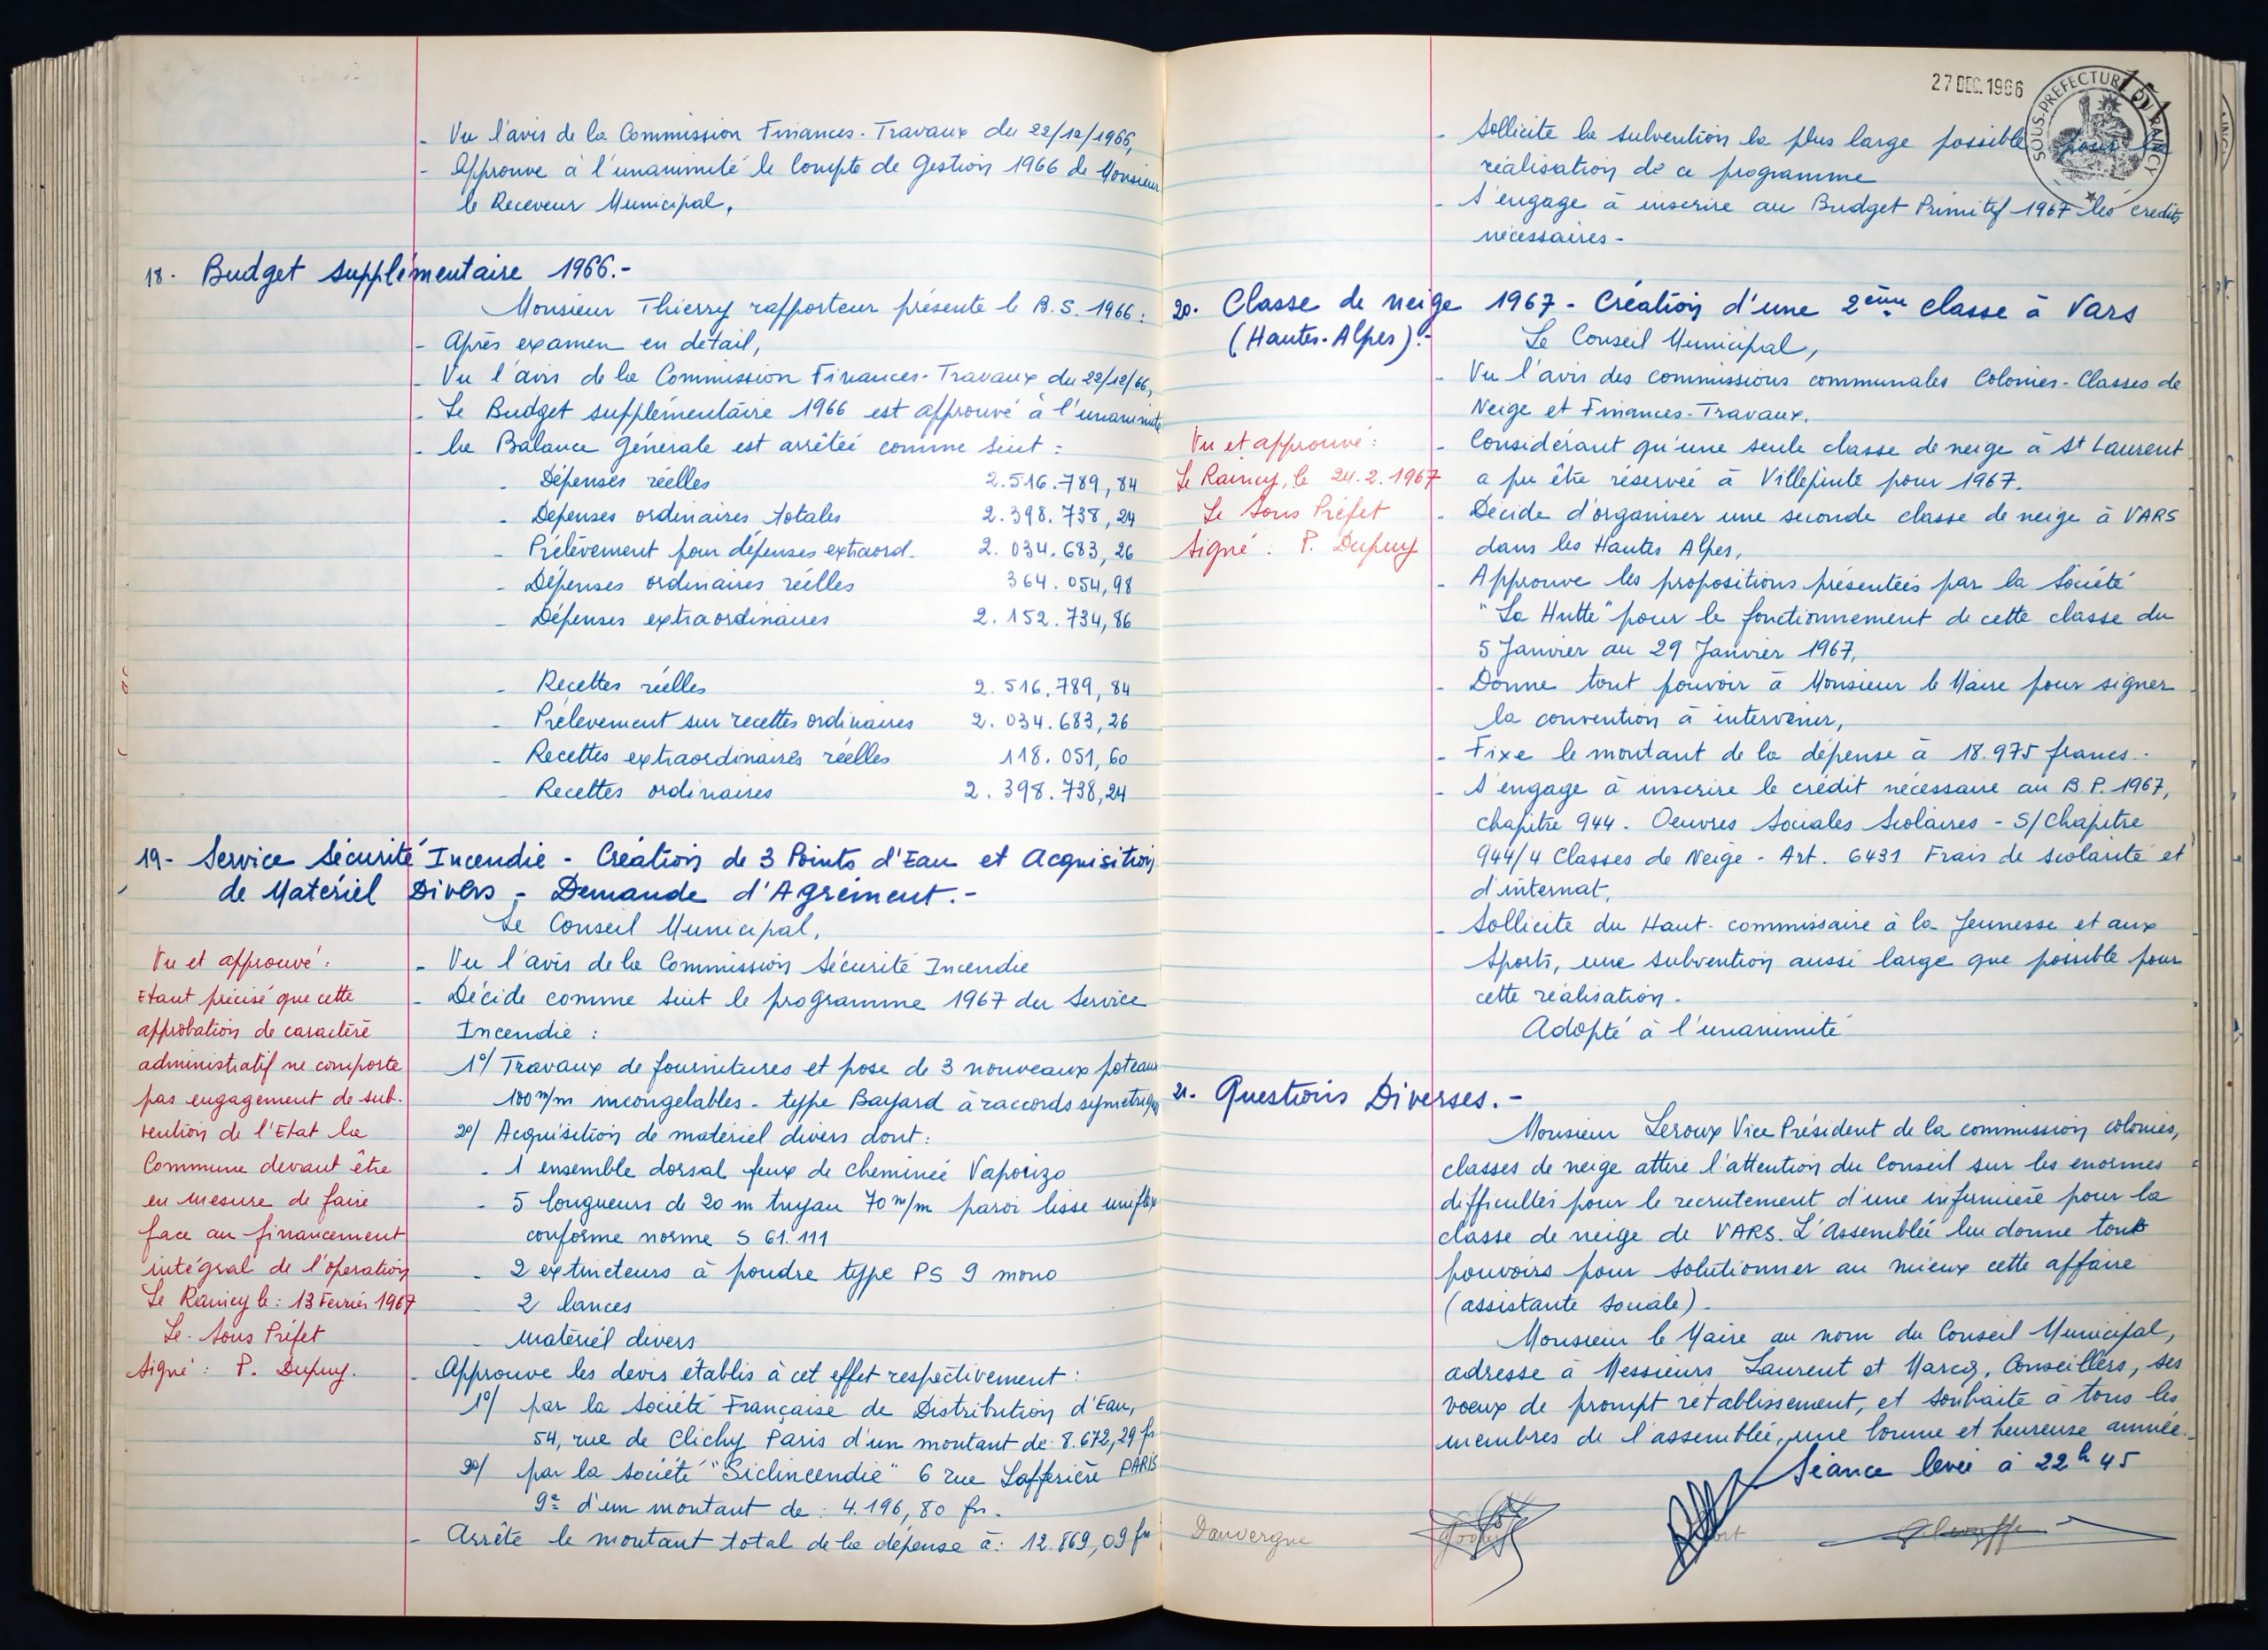 - Vu l'avis de la Commission Finances-Travaux du 22/12/1966,
- Approuve à l'unanimité le Compte de Gestion 1966 de Monsieur
le Receveur Municipal.
18. Budget supplémentaire 1966.-
Monsieur Thierry rapporteur présente le B.S. 1966 :
- Après examen en détail,
- Vu l'avis de la Commission Finances-Travaux du 22/12/66,
- Le Budget supplémentaire 1966 est approuvé à l'unanimité
- La Balance Générale est arrêtée comme suit :
- Dépenses réelles 2.516.789,84
- Dépenses ordinaires totales 2.398.738,24
- Prélèvement pour dépenses extraord. 2.034.683,26
- Dépenses ordinaires réelles 364.054,98
- Dépenses extraordinaires 2.152.734,86
- Recettes réelles 2.516.789,84
- Prélèvement sur recettes ordinaires 2.034.683,26
- Recettes extraordinaires réelles 118.051,60
- Recettes ordinaires 2.398.738,24
19- Service Sécurité Incendie - Création de 3 Points d'Eau et Acquisition
de Matériel Divers - Demande d'Agrément.-
Le Conseil Municipal,
- Vu l'avis de la Commission Sécurité Incendie
- Décide comme suit le programme 1967 du Service
Incendie :
1°/ Travaux de fournitures et pose de 3 nouveaux poteaux
100 m/m incongelables - type Bayard à raccords symétriques
2°/ Acquisition de matériel divers dont :
- 1 ensemble dorsal feux de cheminée Vaporizo
- 5 longueurs de 20 m tuyau 70 m/m paroi lisse uniflex
conforme norme S 61.111
- 2 extincteurs à poudre type PS 9 mono
- 2 lances
- matériel divers
- Approuve les devis établis à cet effet respectivement :
1°/ par la Société Française de Distribution d'Eau,
54, rue de Clichy Paris d'un montant de : 8.672,29 fr
2°/ par la Société "Siclincendie" 6 rue Lafferière PARIS
9e d'un montant de : 4.196,80 frs.
- Arrête le montant total de la dépense à : 12.869,09 frs
Vu et approuvé :
Etant précisé que cette
approbation de caractère
administratif ne comporte
pas engagement de sub-
vention de l'Etat la
Commune devant être
en mesure de faire
face au financement
intégral de l'opération
Le Raincy le : 13 Février 1967
Le Sous Préfet
Signé : P. Dupuy.
27 DEC. 1966
SOUS-PREFECTURE DU RAINCY
- Sollicite la subvention la plus large possible pour la
réalisation de ce programme
- S'engage à inscrire au Budget Primitif 1967 les crédits
nécessaires -
20. Classe de neige 1967 - Création d'une 2ème classe à Vars
(Hautes-Alpes).-
Le Conseil Municipal,
- Vu l'avis des commissions communales Colonies-Classes de
Neige et Finances-Travaux.
- Considérant qu'une seule classe de neige à St Laurent
a pu être réservée à Villepinte pour 1967.
- Décide d'organiser une seconde classe de neige à VARS
dans les Hautes Alpes,
- Approuve les propositions présentées par la Société
"La Hutte" pour le fonctionnement de cette classe du
5 Janvier au 29 Janvier 1967,
- Donne tout pouvoir à Monsieur le Maire pour signer
la convention à intervenir,
- Fixe le montant de la dépense à 18.975 francs.
- S'engage à inscrire le crédit nécessaire au B.P. 1967,
chapitre 944. Oeuvres Sociales Scolaires - S/Chapitre
944/4 Classes de Neige - Art. 6431 Frais de scolarité et
d'internat,
- Sollicite du Haut-commissaire à la Jeunesse et aux
Sports, une subvention aussi large que possible pour
cette réalisation.
Adopté à l'unanimité
Vu et approuvé :
Le Raincy, le 24.2.1967
Le Sous Préfet
Signé : P. Dupuy
21. Questions Diverses.-
Monsieur Leroux Vice Président de la commission colonies,
classes de neige attire l'attention du Conseil sur les énormes
difficultés pour le recrutement d'une infirmière pour la
classe de neige de VARS. L'Assemblée lui donne tout
pouvoirs pour solutionner au mieux cette affaire
(assistante sociale).
Monsieur le Maire au nom du Conseil Municipal,
adresse à Messieurs Laurent et Marcq, Conseillers, ses
voeux de prompt rétablissement, et souhaite à tous les
membres de l'assemblée, une bonne et heureuse année.
Séance levée à 22h45
Dauvergne